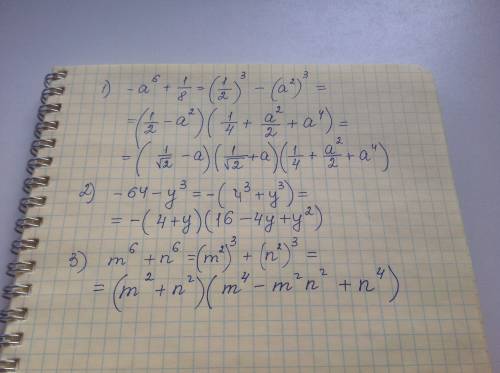 1) -a⁶ + 1/8 = (1/2)³ - (a²)³ =
= (1/2 - a²)(1/4 + a²/2 + a⁴) =
= (1/√2 - a)(1/√2 + a)(1/4 + a²/2 + a⁴)
2) -64 - y³ = -(4³ + y³) =
= -(4 + y)(16 - 4y + y²)
3) m⁶ + n⁶ = (m²)³ + (n²)³ =
= (m² + n²)(m⁴ - m²n² + n⁴)